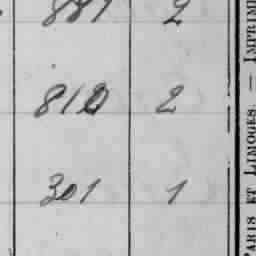 887 2
810 2
301 1
PARIS ET LIMOGES. — IMPRIME